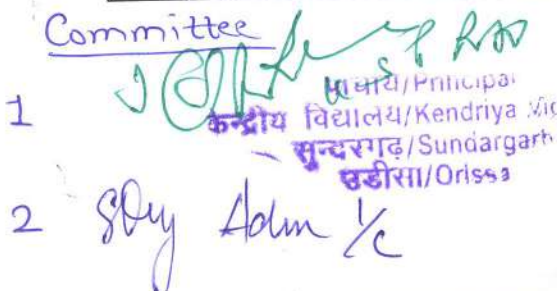 Committee
1
प्राचार्य/Principal
केन्द्रीय विद्यालय/Kendriya
सुन्दरगढ़/Sundargarh
उडीसा/Orissa
2 Adm I/c